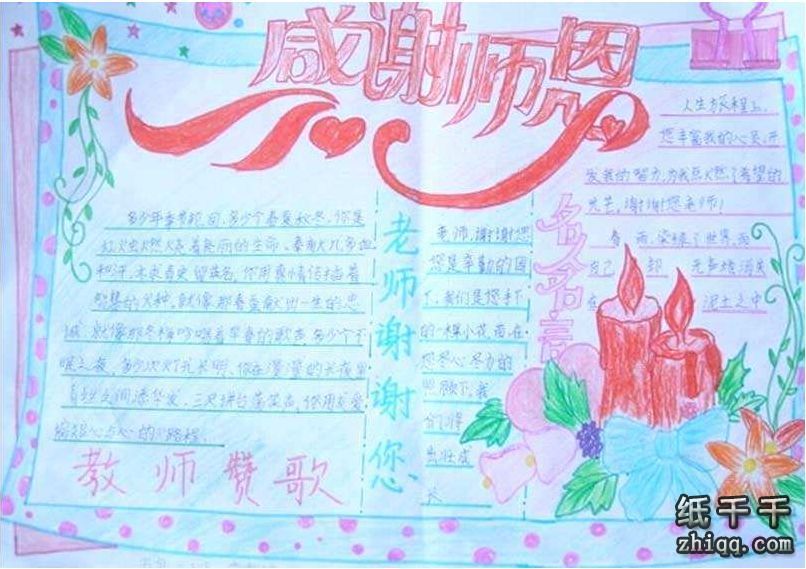 感谢师恩
多少年季节轮回,多少个春夏秋冬,你是
红烛燃烧着亮丽的生命、奉献几多血
和汗,不求青史留英名,你用真情传播着
智慧的火种,就像那春蚕献出一生的忠
诚,就像那冬梅吟唱着早春的歌声,多少个不
眠之夜,多少次灯光长明,你在漫漫的长夜里
三尺讲台荡笑态,你用友爱
缩短心与心的路程。
教师赞歌
老师谢谢您
老师,谢谢您
您是辛勤的园
丁,我们是您手下
的一棵小花,而在
您尽心尽力的
照顾下,我
们得
茁壮成
长
名人名言
人生旅程上,
您丰富我的心灵,开
发我的智力,为我点燃了希望的
光芒,谢谢您老师!
春雨,染绿了世界,而
自己却无声地消失
在泥土之中
纸千千
zhiqq.com